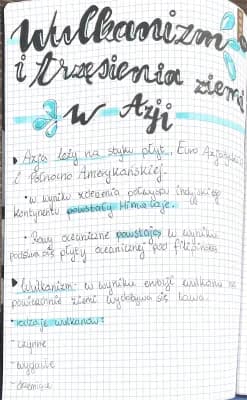 Wulkanizm
i trzęsienia ziemi
w Azji
▶ Azja leży na styku płyt, Euro Azjatyckiej
i Północno Amerykańskiej.
• w wyniku zderzenia półwyspu Indyjskiego
kontynentu powstały Himalaje.
• Rowy oceaniczne powstają w wyniku
podsuwa się płyty oceanicznej pod filipińską
▶ Wulkanizm - w wyniku erupcji wulkanu na
powierzchnię ziemi wydobywa się lawa.
• rodzaje wulkanów:
- czynne
- wygasłe
- drzemiące